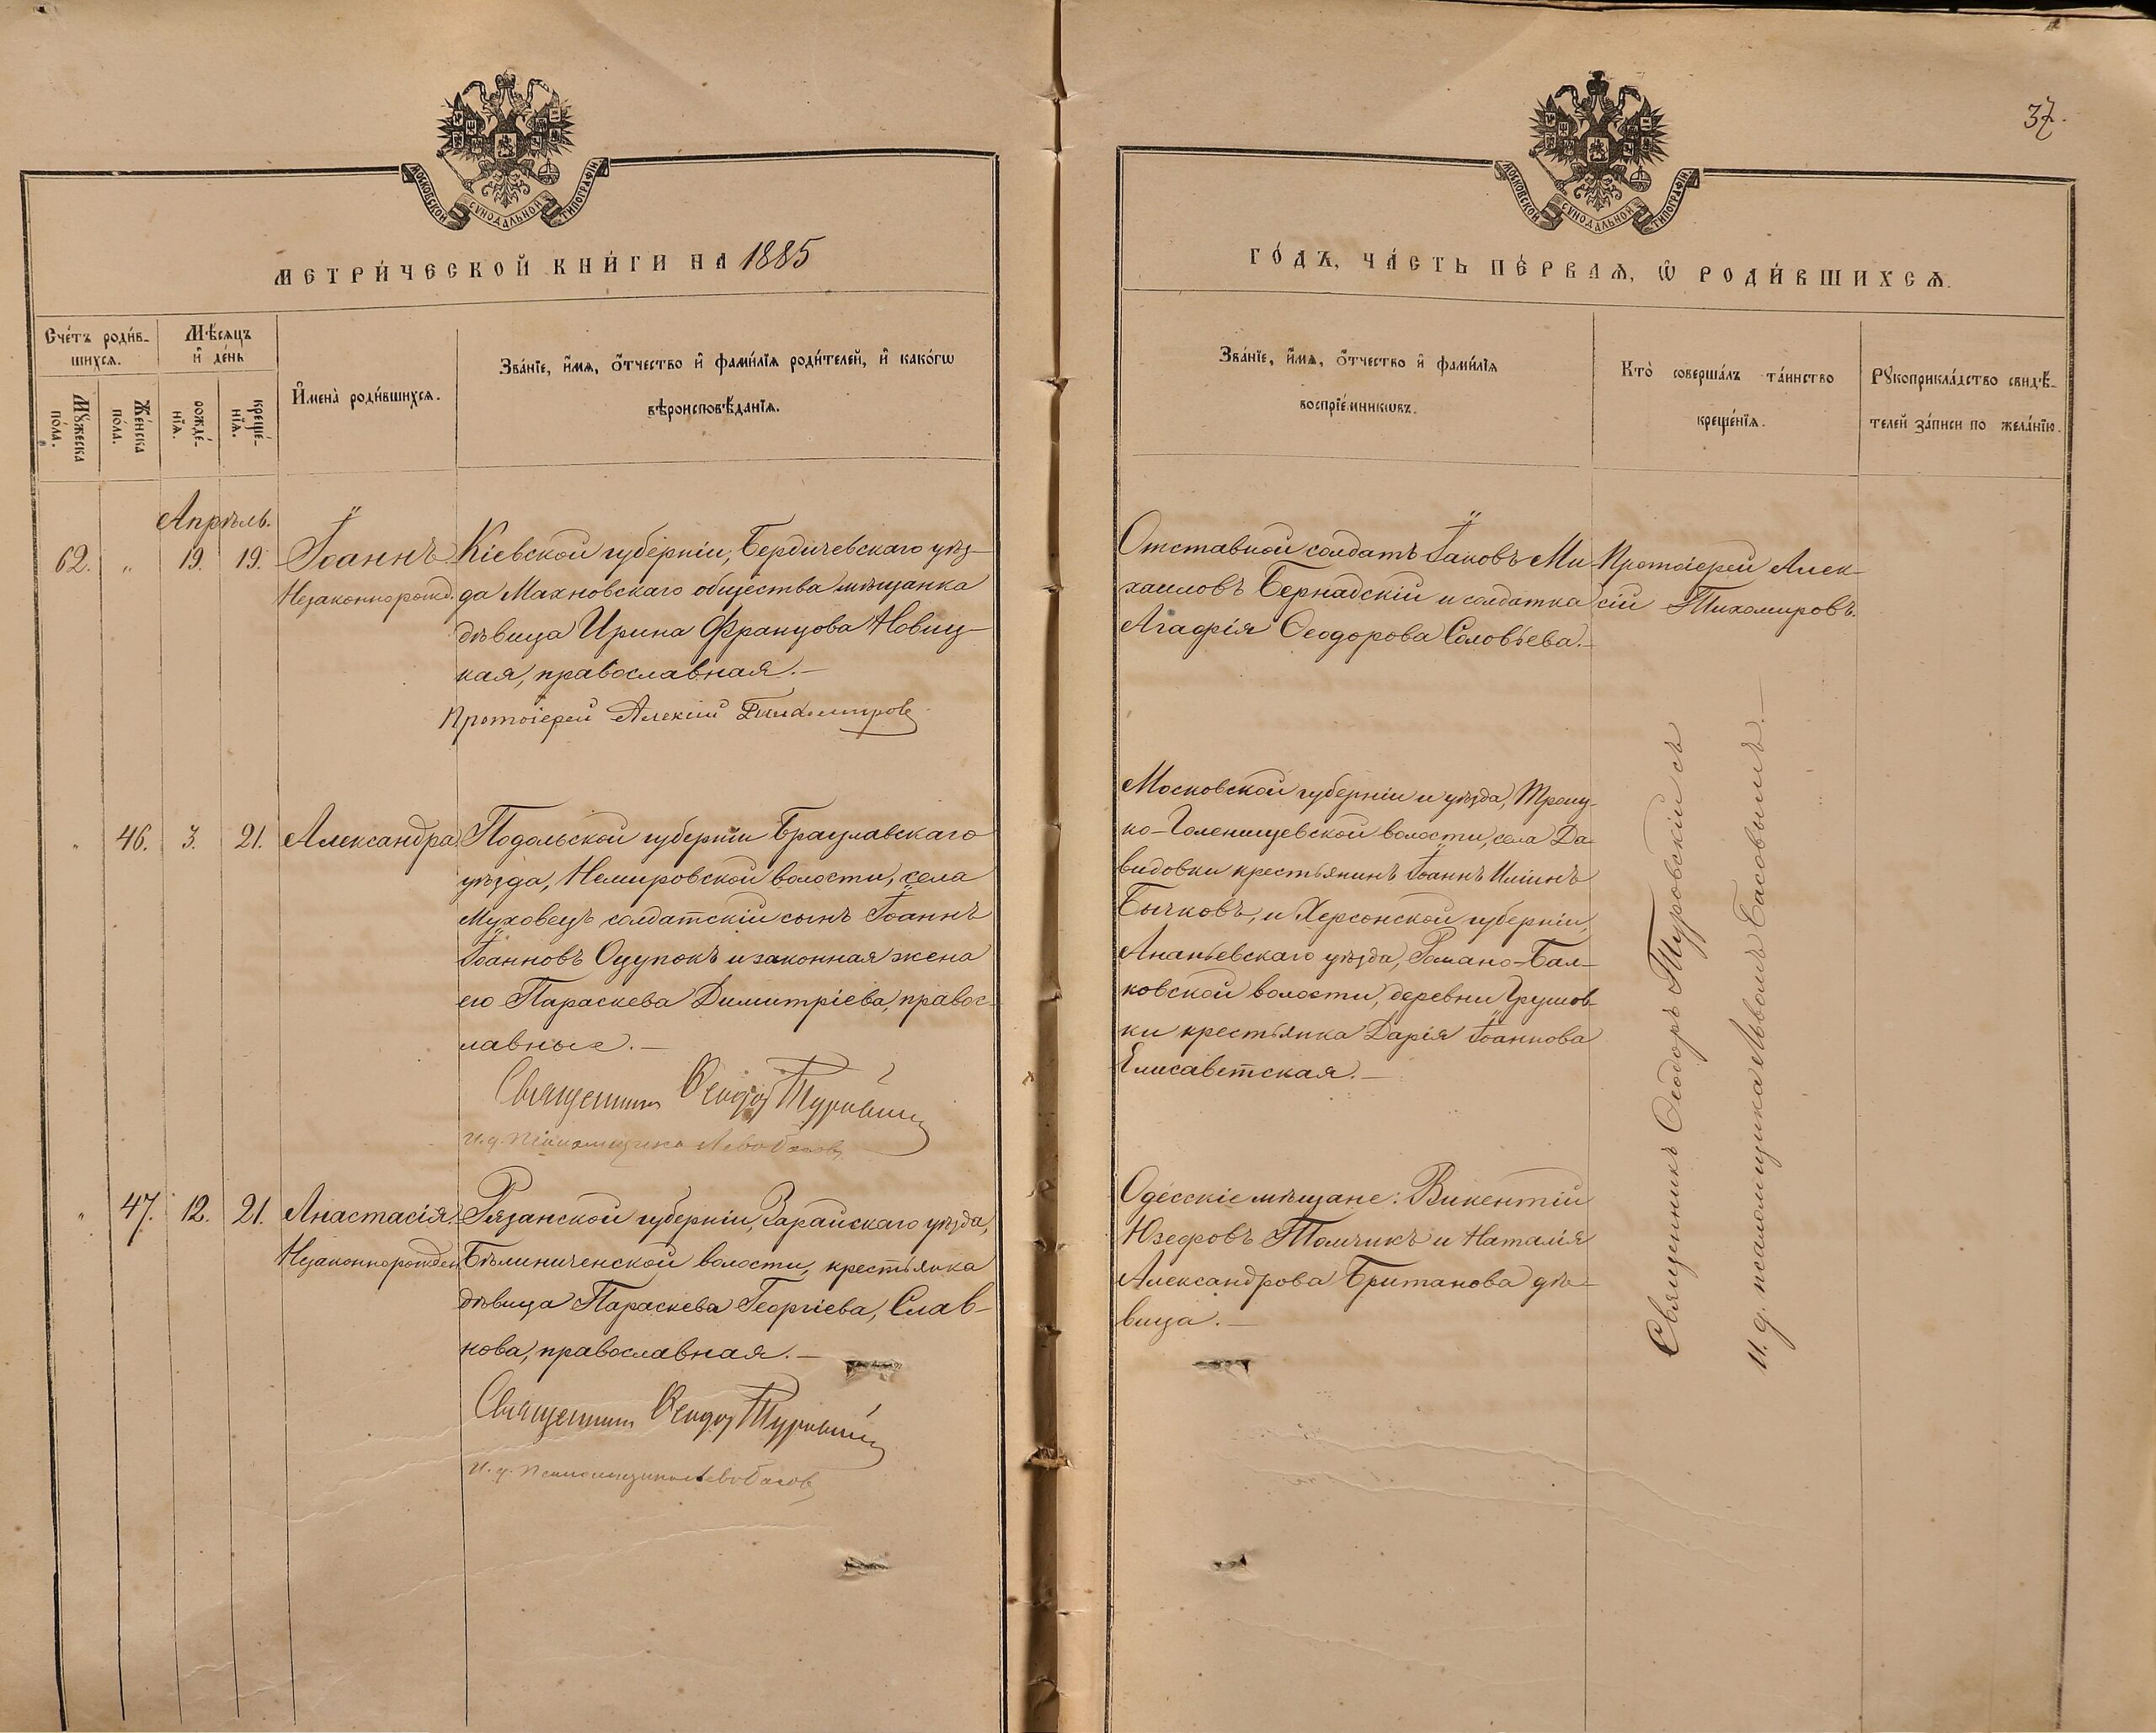 37.
МОСКОВСКОЙ СѴНОДАЛЬНОЙ ТИПОГРАФІИ
МОСКОВСКОЙ СѴНОДАЛЬНОЙ ТИПОГРАФІИ
МЕТРИ́ЧЕСКОЙ КНИ́ГИ НА 1885
ГО́ДЪ, ЧА́СТЬ ПЕ́РВАѦ, Ѡ РОДИ́ВШИХСѦ.
Сче́тъ роди́в-
шихсѧ.
Мꙋ́жеска
по́ла.
Же́нска
по́ла.
Мѣ́сѧцъ
и҆ де́нь
рожде́-
нїѧ.
креще́-
нїѧ.
И҆мена̀ роди́вшихсѧ.
Зва́нїе, и҆́мѧ, ѻ҆́тчество и҆ фами́лїѧ роди́телей, и҆ како́гѡ
вѣроисповѣ́данїѧ.
Зва́нїе, и҆́мѧ, ѻ҆́тчество и҆ фами́лїѧ
воспрїе́мникѡвъ.
Кто̀ соверша́лъ та́инство
креще́нїѧ.
Рꙋкоприкла́дство свидѣ́-
телей за́писи по жела́нїю.
Апрѣль.
62. „ 19. 19. Іоаннъ
Незаконнорожд.
Кіевской губерніи, Бердичевскаго уѣз-
да Махновскаго общества мѣщанка
дѣвица Ирина Францова Новиц-
кая, православная.—
Протоіерей Алексій Тихомировъ
Отставной солдатъ Іаковъ Ми-
хаиловъ Бернадскій и солдатка
Агафія Ѳеодорова Соловьева.—
Протоіерей Алек-
сій Тихомировъ.
„ 46. 3. 21. Александра
Подольской губерніи Брацлавскаго
уѣзда, Немировской волости, села
Муховецъ солдатскій сынъ Іоаннъ
Іоанновъ Оцупокъ и законная жена
его Параскева Димитріева, правос-
лавные.—
Священникъ Ѳеодоръ Туровскій
и. д. псаломщика Левъ Басовъ
Московской губерніи и уѣзда, Троиц-
ко-Голенищевской волости, села Да-
видовки крестьянинъ Іоаннъ Иліинъ
Бычковъ, и Херсонской губерніи,
Ананьевскаго уѣзда, Романо-Бал-
ковской волости, деревни Грушов-
ки крестьянка Дарія Іоаннова
Елисаветская.—
Священникъ Ѳеодоръ Туровскій съ
и. д. псаломщика Львомъ Басовымъ.—
„ 47. 12. 21. Анастасія.
Незаконнорожден.
Рязанской губерніи, Зарайскаго уѣзда,
Бѣлиниченской волости, крестьянка
дѣвица Параскева Георгіева, Слав-
нова, православная.—
Священникъ Ѳеодоръ Туровскій
и. д. псаломщика Левъ Басовъ
Одесскіе мѣщане: Викентій
Юзефовъ Томчикъ и Наталія
Александрова Британова дѣ-
вица.—